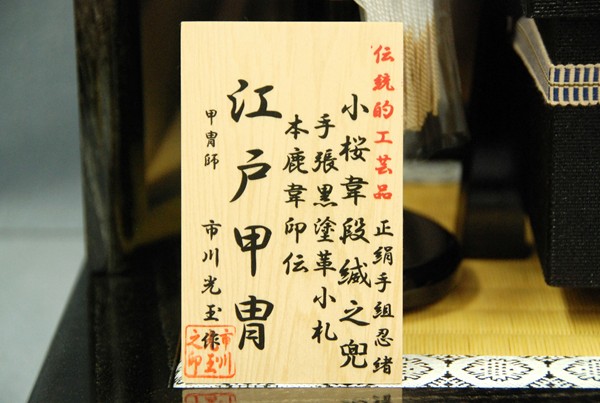 伝統的工芸品 正絹手組忍緒
小桜韋段縅之兜
手張黒塗革小札
本鹿韋印伝
江戸甲冑
甲冑師 市川光玉作
市川
玉
之印